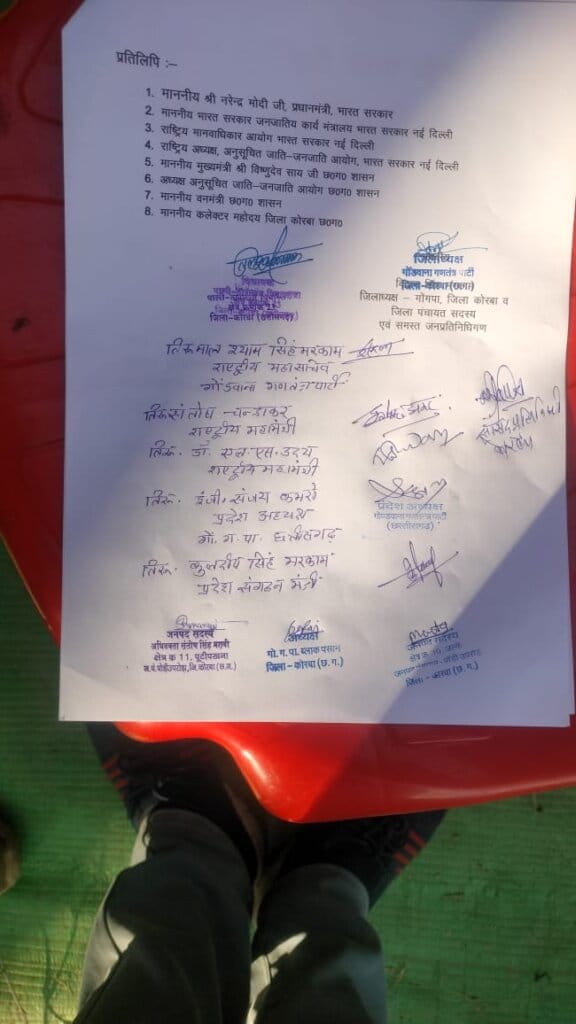 प्रतिलिपि :–
1. माननीय श्री नरेन्द्र मोदी जी, प्रधानमंत्री, भारत सरकार
2. माननीय भारत सरकार जनजातिय कार्य मंत्रालय भारत सरकार नई दिल्ली
3. राष्ट्रिय मानवाधिकार आयोग भारत सरकार नई दिल्ली
4. राष्ट्रिय अध्यक्ष, अनुसूचित जाति–जनजाति आयोग, भारत सरकार नई दिल्ली
5. माननीय मुख्यमंत्री श्री विष्णुदेव साय जी छ0ग0 शासन
6. अध्यक्ष अनुसूचित जाति–जनजाति आयोग छ0ग0 शासन
7. माननीय वनमंत्री छ0ग0 शासन
8. माननीय कलेक्टर महोदय जिला कोरबा छ0ग0
विधायक
जिला-कोरबा (छत्तीसगढ़)
जिलाध्यक्ष
गोंडवाना गणतंत्र पार्टी
जिला-कोरबा (छ.ग.)
जिलाध्यक्ष – गोंगपा, जिला कोरबा व
जिला पंचायत सदस्य
एवं समस्त जनप्रतिनिधिगण
तिरूमाल श्याम सिंह मरकाम
राष्ट्रीय महासचिव
गोंडवाना गणतंत्र पार्टी
राष्ट्रीय महामंत्री
तिरू. डॉ. एल. एस. उदय
राष्ट्रीय महामंत्री
तिरू. इंजी. संजय कमरो
प्रदेश अध्यक्ष
गों. ग. पा. छत्तीसगढ़
प्रदेश अध्यक्ष
गोण्डवाना गणतंत्र पार्टी
(छत्तीसगढ़)
तिरू. कुलदीप सिंह मरकाम
प्रदेश संगठन मंत्री
जनपद सदस्य
अधिवक्ता संतोष सिंह मरावी
क्षेत्र क्र 11, पुटीपखना
ज.पं.पोड़ीउपरोड़ा,जि.कोरबा (छ.ग.)
अध्यक्ष
गो. ग. पा. ब्लाक पसान
जिला - कोरबा (छ. ग.)
जनपद सदस्य
जिला - कोरबा (छ. ग.)